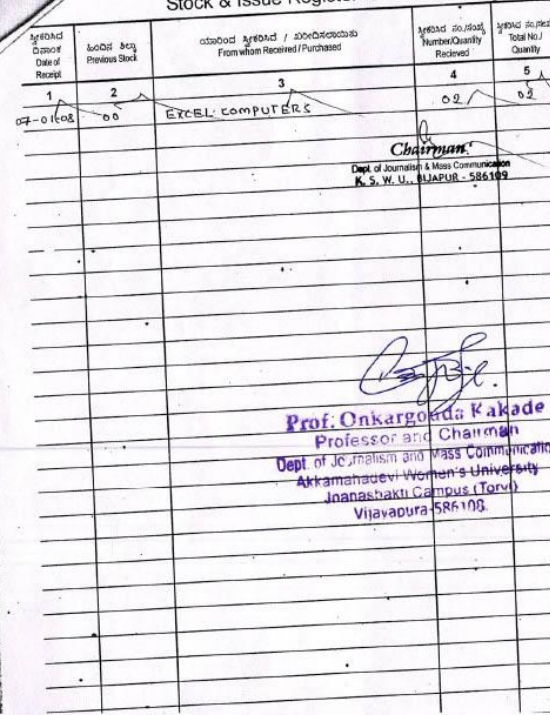 Stock & Issue Register
ಸ್ವೀಕರಿಸಿದ ದಿನಾಂಕ
Date of Receipt
ಹಿಂದಿನ ಶಿಲ್ಕು
Previous Stock
ಯಾರಿಂದ ಸ್ವೀಕರಿಸಿದೆ / ಖರೀದಿಸಲಾಯಿತು
From whom Received / Purchased
ಸ್ವೀಕರಿಸಿದ ಸಂ./ಸಂಖ್ಯೆ
Number/Quantity
Recieved
ಸ್ವೀಕರಿಸಿದ
Total No./
Quantity
1 2 3 4 5
07-01-08 00 EXCEL COMPUTERS 02 02
Chairman
Dept. of Journalism & Mass Communication
K. S. W. U., BIJAPUR - 586109
Prof: Onkargouda Kakade
Professor and Chairman
Dept. of Journalism and Mass Communicatio
Akkamahadevi Women's University
Jnanashakti Campus (Torvi)
Vijayapura-586108.